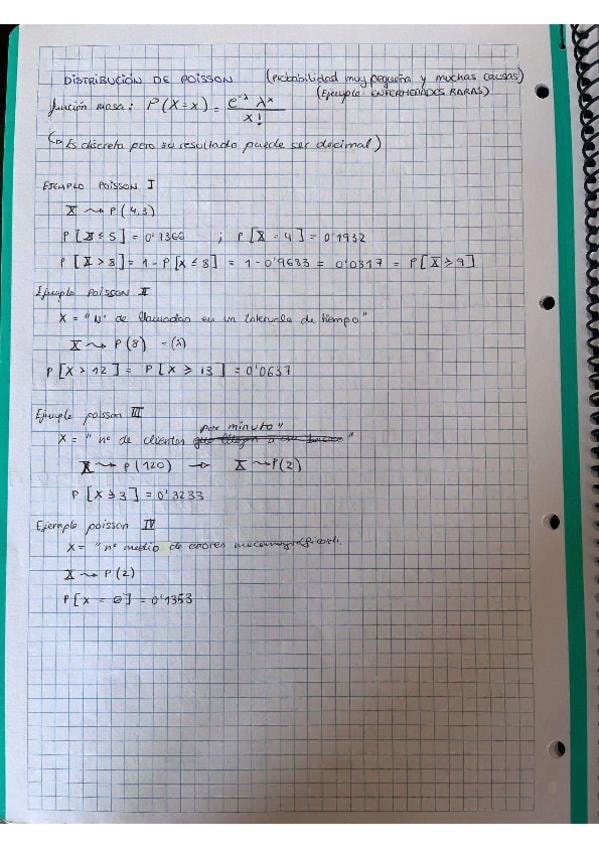 DISTRIBUCIÓN DE POISSON (Probabilidad muy pequeña y muchas causas)
(Ejemplo: ENFERMEDADES RARAS)
función masa: P(X=x) = e^-λ λ^x / x!
(Es discreta pero su resultado puede ser decimal)
EJEMPLO POISSON I
X ⇝ P(4,3)
P[X ≤ 5] = 0'1366 ; P[X = 4] = 0'1932
P[X > 8] = 1 - P[X ≤ 8] = 1 - 0'9683 = 0'0317 = P[X ≥ 9]
Ejemplo POISSON II
X = "Nº de llamadas en un intervalo de tiempo"
X ⇝ P(8) - (λ)
P[X > 12] = P[X ≥ 13] = 0'0637
Ejemplo poisson III
por minuto"
X = "nº de clientes "
X ⇝ P(120) → X ⇝ P(2)
P[X ≥ 3] = 0'3233
Ejemplo poisson IV
X = "nº medio de errores
X ⇝ P(2)
P[X = 0] = 0'1353